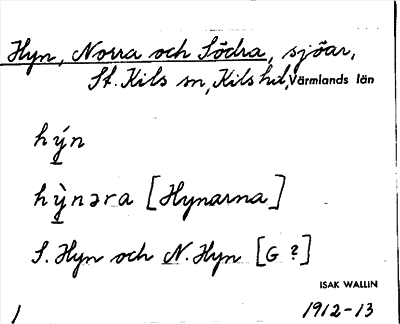 Hyn, Norra och Södra, sjöar,
St. Kils sn, Kils hd, Värmlands län
hýn
hỳ̖nəra [Hynarna]
S. Hyn och N. Hyn [G ?]
ISAK WALLIN
1 1912-13